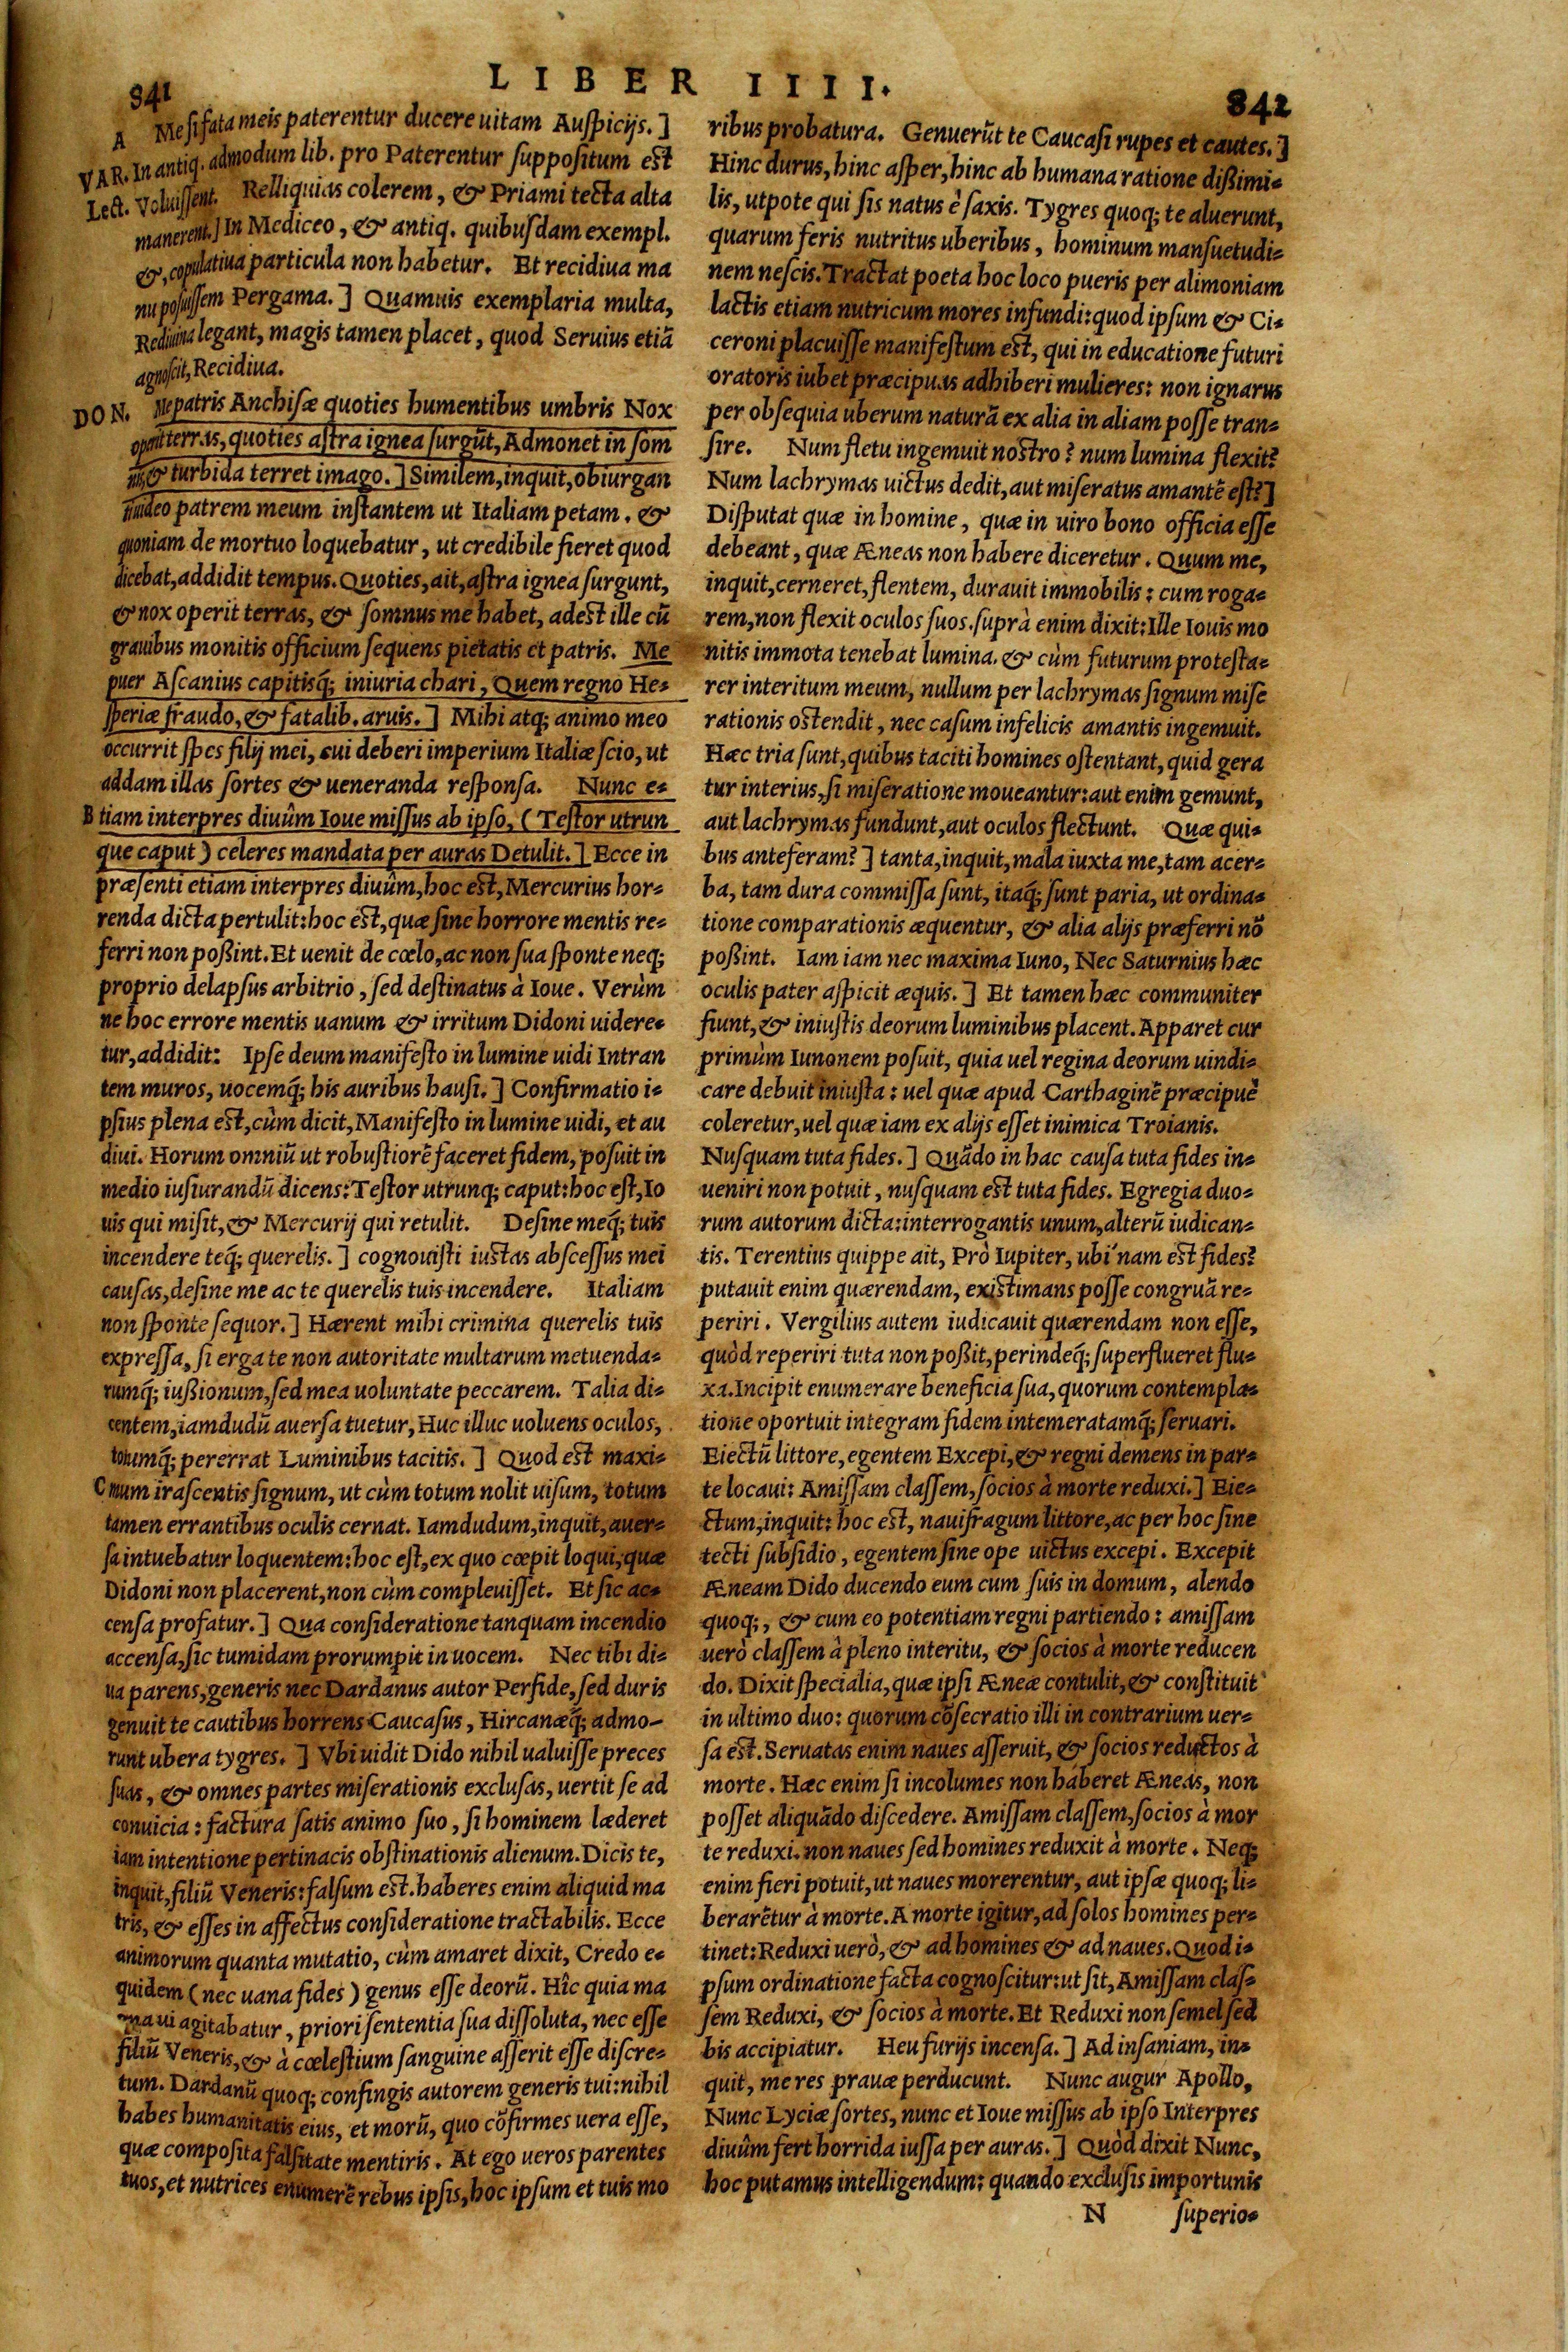 841
LIBER IIII.
842
A Me si fata meis paterentur ducere uitam Auspicijs.]
VAR. In antiq. admodum lib. pro Paterentur suppositum est
Lect. Voluissent. Relliquias colerem, & Priami tecta alta
manerent.] In Mediceo, & antiq. quibusdam exempl.
&, copulatiua particula non habetur. Et recidiua ma
nu posuissem Pergama.] Quamuis exemplaria multa,
Rediuiua legant, magis tamen placet, quod Seruius etiã
agnoscit, Recidiua.
DON. Me patris Anchisæ quoties humentibus umbris Nox
operit terras, quoties astra ignea surgũt, Admonet in som
nis, & turbida terret imago.] Similem, inquit, obiurgan
ti uideo patrem meum instantem ut Italiam petam. &
quoniam de mortuo loquebatur, ut credibile fieret quod
dicebat, addidit tempus. Quoties, ait, astra ignea surgunt,
& nox operit terras, & somnus me habet, adest ille cũ
grauibus monitis officium sequens pietatis et patris. Me
puer Ascanius capitisq; iniuria chari, Quem regno He-
speriæ fraudo, & fatalib. aruis.] Mihi atq; animo meo
occurrit spes filij mei, cui deberi imperium Italiæ scio, ut
addam illas sortes & ueneranda responsa. Nunc e-
B tiam interpres diuûm Ioue missus ab ipso, (Testor utrun
que caput) celeres mandata per auras Detulit.] Ecce in
præsenti etiam interpres diuûm, hoc est, Mercurius hor-
renda dicta pertulit: hoc est, quæ sine horrore mentis re-
ferri non poßint. Et uenit de cœlo, ac non sua sponte neq;
proprio delapsus arbitrio, sed destinatus à Ioue. Verùm
ne hoc errore mentis uanum & irritum Didoni uidere-
tur, addidit: Ipse deum manifesto in lumine uidi Intran
tem muros, uocemq; his auribus hausi.] Confirmatio i-
psius plena est, cùm dicit, Manifesto in lumine uidi, et au
diui. Horum omniũ ut robustiorẽ faceret fidem, posuit in
medio iusiurandũ dicens: Testor utrunq; caput: hoc est, Io
uis qui misit, & Mercurij qui retulit. Desine meq; tuis
incendere teq; querelis.] cognouisti iustas abscessus mei
causas, desine me ac te querelis tuis incendere. Italiam
non sponte sequor.] Hærent mihi crimina querelis tuis
expressa, si erga te non autoritate multarum metuenda-
rumq; iußionum, sed mea uoluntate peccarem. Talia di-
centem, iamdudũ auersa tuetur, Huc illuc uoluens oculos,
totumq; pererrat Luminibus tacitis.] Quod est maxi-
C mum irascentis signum, ut cùm totum nolit uisum, totum
tamen errantibus oculis cernat. Iamdudum, inquit, auer-
sa intuebatur loquentem: hoc est, ex quo cœpit loqui, quæ
Didoni non placerent, non cùm compleuisset. Et sic ac-
censa profatur.] Qua consideratione tanquam incendio
accensa, sic tumidam prorumpit in uocem. Nec tibi di-
ua parens, generis nec Dardanus autor Perfide, sed duris
genuit te cautibus horrens Caucasus, Hircanæq; admo-
runt ubera tygres.] Vbi uidit Dido nihil ualuisse preces
suas, & omnes partes miserationis exclusas, uertit se ad
conuicia: factura satis animo suo, si hominem læderet
iam intentione pertinacis obstinationis alienum. Dicis te,
inquit, filiũ Veneris: falsum est. haberes enim aliquid ma
tris, & esses in affectus consideratione tractabilis. Ecce
animorum quanta mutatio, cùm amaret dixit, Credo e-
quidem (nec uana fides) genus esse deorũ. Hîc quia ma
ma ui agitabatur, priori sententia sua dissoluta, nec esse
filiũ Veneris, & à cœlestium sanguine asserit esse discre-
tum. Dardanũ quoq; confingis autorem generis tui: nihil
habes humanitatis eius, et morũ, quo cõfirmes uera esse,
quæ composita falsitate mentiris. At ego ueros parentes
tuos, et nutrices enumerẽ rebus ipsis, hoc ipsum et tuis mo
ribus probatura. Genuerũt te Caucasi rupes et cautes.]
Hinc durus, hinc asper, hinc ab humana ratione dißimi-
lis, utpote qui sis natus è saxis. Tygres quoq; te aluerunt,
quarum feris nutritus uberibus, hominum mansuetudi-
nem nescis. Tractat poeta hoc loco pueris per alimoniam
lactis etiam nutricum mores infundi: quod ipsum & Ci-
ceroni placuisse manifestum est, qui in educatione futuri
oratoris iubet præcipuas adhiberi mulieres: non ignarus
per obsequia uberum naturã ex alia in aliam posse tran-
sire. Num fletu ingemuit nostro? num lumina flexit?
Num lachrymas uictus dedit, aut miseratus amantẽ est?]
Disputat quæ in homine, quæ in uiro bono officia esse
debeant, quæ Æneas non habere diceretur. Quum me,
inquit, cerneret, flentem, durauit immobilis: cum roga-
rem, non flexit oculos suos. suprà enim dixit: Ille Iouis mo
nitis immota tenebat lumina. & cùm futurum protesta-
rer interitum meum, nullum per lachrymas signum mise
rationis ostendit, nec casum infelicis amantis ingemuit.
Hæc tria sunt, quibus taciti homines ostentant, quid gera
tur interius, si miseratione moueantur: aut enim gemunt,
aut lachrymas fundunt, aut oculos flectunt. Quæ qui-
bus anteferam?] tanta, inquit, mala iuxta me, tam acer-
ba, tam dura commissa sunt, itaq; sunt paria, ut ordina-
tione comparationis æquentur, & alia alijs præferri nõ
poßint. Iam iam nec maxima Iuno, Nec Saturnius hæc
oculis pater aspicit æquis.] Et tamen hæc communiter
fiunt, & iniustis deorum luminibus placent. Apparet cur
primùm Iunonem posuit, quia uel regina deorum uindi-
care debuit iniusta: uel quæ apud Carthaginẽ præcipuè
coleretur, uel quæ iam ex alijs esset inimica Troianis.
Nusquam tuta fides.] Quãdo in hac causa tuta fides in-
ueniri non potuit, nusquam est tuta fides. Egregia duo-
rum autorum dicta: interrogantis unum, alterũ iudican-
tis. Terentius quippe ait, Prò Iupiter, ubi nam est fides?
putauit enim quærendam, existimans posse congruã re-
periri. Vergilius autem iudicauit quærendam non esse,
quòd reperiri tuta non poßit, perindeq; superflueret flu-
xa. Incipit enumerare beneficia sua, quorum contempla-
tione oportuit integram fidem intemeratamq; seruari.
Eiectũ littore, egentem Excepi, & regni demens in par-
te locaui: Amissam classem, socios à morte reduxi.] Eie-
ctum, inquit: hoc est, naufragum littore, ac per hoc sine
tecti subsidio, egentem sine ope uictus excepi. Excepit
Æneam Dido ducendo eum cum suis in domum, alendo
quoq;, & cum eo potentiam regni partiendo: amissam
uerò classem à pleno interitu, & socios à morte reducen
do. Dixit specialia, quæ ipsi Æneæ contulit, & constituit
in ultimo duo: quorum cõsecratio illi in contrarium uer-
sa est. Seruatas enim naues asseruit, & socios reductos à
morte. Hæc enim si incolumes non haberet Æneas, non
posset aliquãdo discedere. Amissam classem, socios à mor
te reduxi. non naues sed homines reduxit à morte. Neq;
enim fieri potuit, ut naues morerentur, aut ipsæ quoq; li-
berarẽtur à morte. A morte igitur, ad solos homines per-
tinet: Reduxi uerò, & ad homines & ad naues. Quod i-
psum ordinatione facta cognoscitur: ut sit, Amissam clas-
sem Reduxi, & socios à morte. Et Reduxi non semel sed
bis accipiatur. Heu furijs incensa.] Ad insaniam, in-
quit, me res prauæ perducunt. Nunc augur Apollo,
Nunc Lyciæ sortes, nunc et Ioue missus ab ipso Interpres
diuûm fert horrida iussa per auras.] Quòd dixit Nunc,
hoc putamus intelligendum: quando exclusis importunis
N superio-